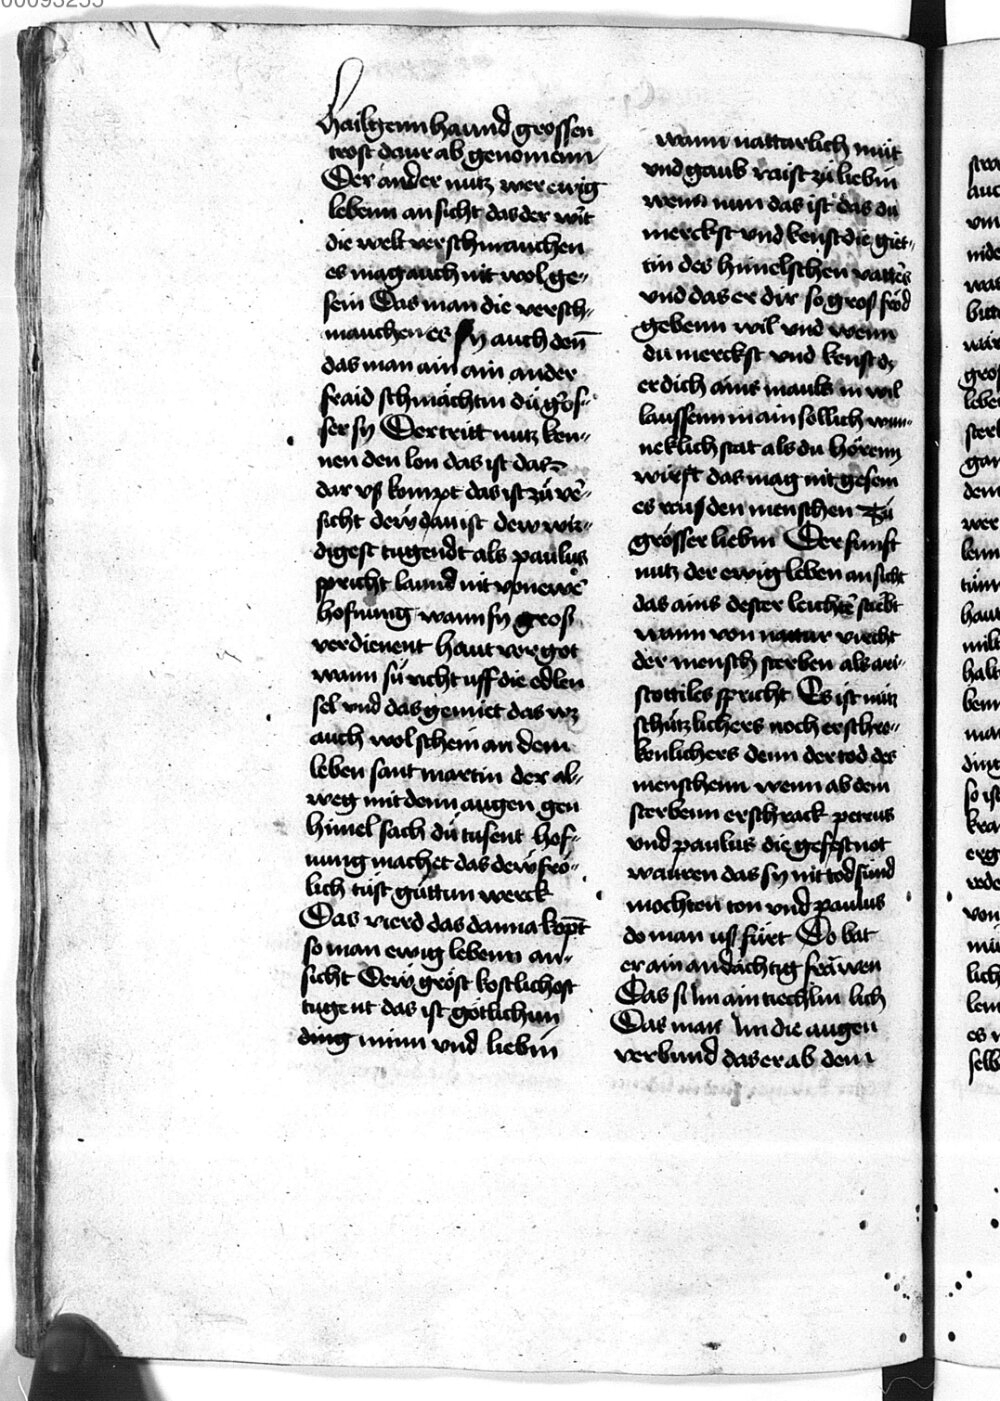 00095255
hailgenn haund grossen
trost daur ab genomenn
Der ander nutz wer ewig
lebenn an sicht das der wit
die welt verschmauchen
es mag auch nit wol ge=
sein Das man die versch=
mauchen es sy auch denn̄
das man ain ain ander
fraid schmächtin dü grös=
ser sy Der tritt nutz ken=
nen den lon das ist das
dar vs kompt das ist zü v̄e=
sicht dew dan ist dew wir=
digest tugendt als paulus
spricht laund nit von ewē
hofnung wann sy gros
verdienent haut vor got
wann sü richt uff die edlen
sel vnd das gemiet das wz
auch wol schein an dem
leben sant martin der al=
weg mit denn augen gen
himel sach dü tusent hof=
nung machet das dew frö=
lich tüst güttun werck
Das vierd das danna kopt̄
so man ewig lebenn an=
sicht Dew gröst kostlichost
tugent das ist götlichun
ding minn vnd liebin
wann natturlich müt
vnd gaub raist zü liebin
wenn nun das ist das du
merckst vnd kenst die giet=
tin des himelschen vatters
vnd das er dir so gros fröd
gebenn wil vnd wenn
du merckst vnd kenst dz
er dich ains mauls in wil
laussenn in ain söllich wun=
neklich stat als du hörenn
würst das mag nit gesein
es rais den menschen zü
grösser liebin Der funft
nutz der ewig leben an sicht
das ains dester leichte᷑ stirbt
wann von nattur vircht
der mensch sterben als ari=
stottiles spricht Es ist nütz
schützlichers noch erschro=
kenlichers denn der tod des
menschenn wenn ab dem
sterbenn erschrack petrus
vnd paulus die gefestnot
wauren das sy nit tod sünd
mochten ton vnd paulus
do man us fürt Do bat
er ain andächtig fräwen
Das si im ain tiechlin lich
Das man im die augen
verbund das er ab dem